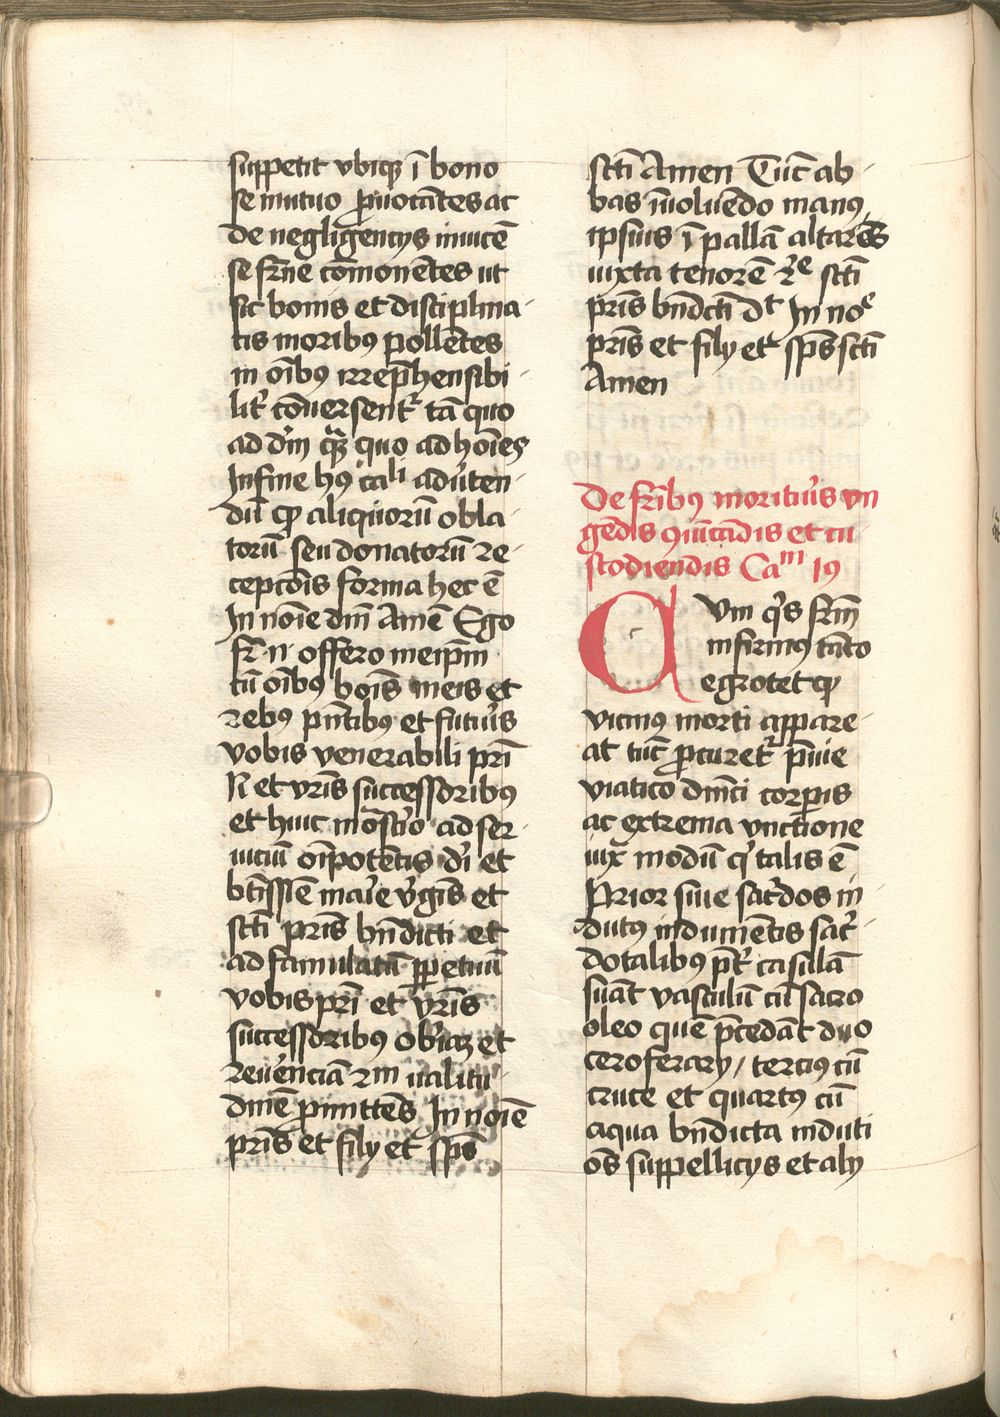 suppetit vbiqꝫ ī bono
se mutuo ꝓuocātes ac
de negligencijs inuicē
se fr̄ne cōmonētes ut
sic bonis et disciplina-
tis moribꝰ pollētes
in oībꝰ irrep̄hensibi-
lit̄ cōuersent̄ tā quo
ad dm̄ qͣꝫ quo ad hoīes
In fine hꝰ caˡⁱ aduten-
dū ꝙ aliquorū obla-
torū seu donatorū re-
cepcōis forma hec ē
In noīe dm̄ Amē Ego
fr̄ n offero meip̄m
cū oībꝰ boīs meis et
rebꝰ pn̄tibꝰ et futuis
vobis venerabili prī
N et vrīs successoribꝰ
et huic mōst̄io ad ser-
uiciū oīpotētis dī et
btīssīe marīe v̓gīs et
sctī prīs bn̄dicti et
ad famulatū ꝑpetuū
vobis prī et vrīs
successoribꝰ obīaꝫ et
reuēnciā rm ualitu-
dinē ꝓmittēs In noīe
prīs et filij et sp̄s
sctī Amen Tūc ab-
bas īuoluēdo manꝰ
ipsius ī pallā altaris
iuxta tenorē rᵉ sctī
prīs bn̄dctī dᵗ In noᵉ
prīs et filij et sp̄s sctī
Amen
De fr̄ibꝰ moritur̄s vn
gēdis ꝯiūcādis et cu
stodiendis Caᵐ 19
Cvm qͥs fr̄m
infirmꝰ tāto
egrotet ꝙ
vicinꝰ morti appare-
at tūc ꝓcuret̄ p̄uie
viatico dm̄ci corꝑis
ac extrema vnctione
iux̄ modū qͥ talis ē
Prior siue sac̓dos in-
dutꝰ indumētis sac̓-
dotalibꝰ p̄t̄ casulā
suāt vasculū cū sacro
oleo quē p̄cedāt duo
ceroferarij / terciꝰ cū
cruce et quartꝰ cū
aqua bn̄dicta induti
oēs suppellicijs et alij